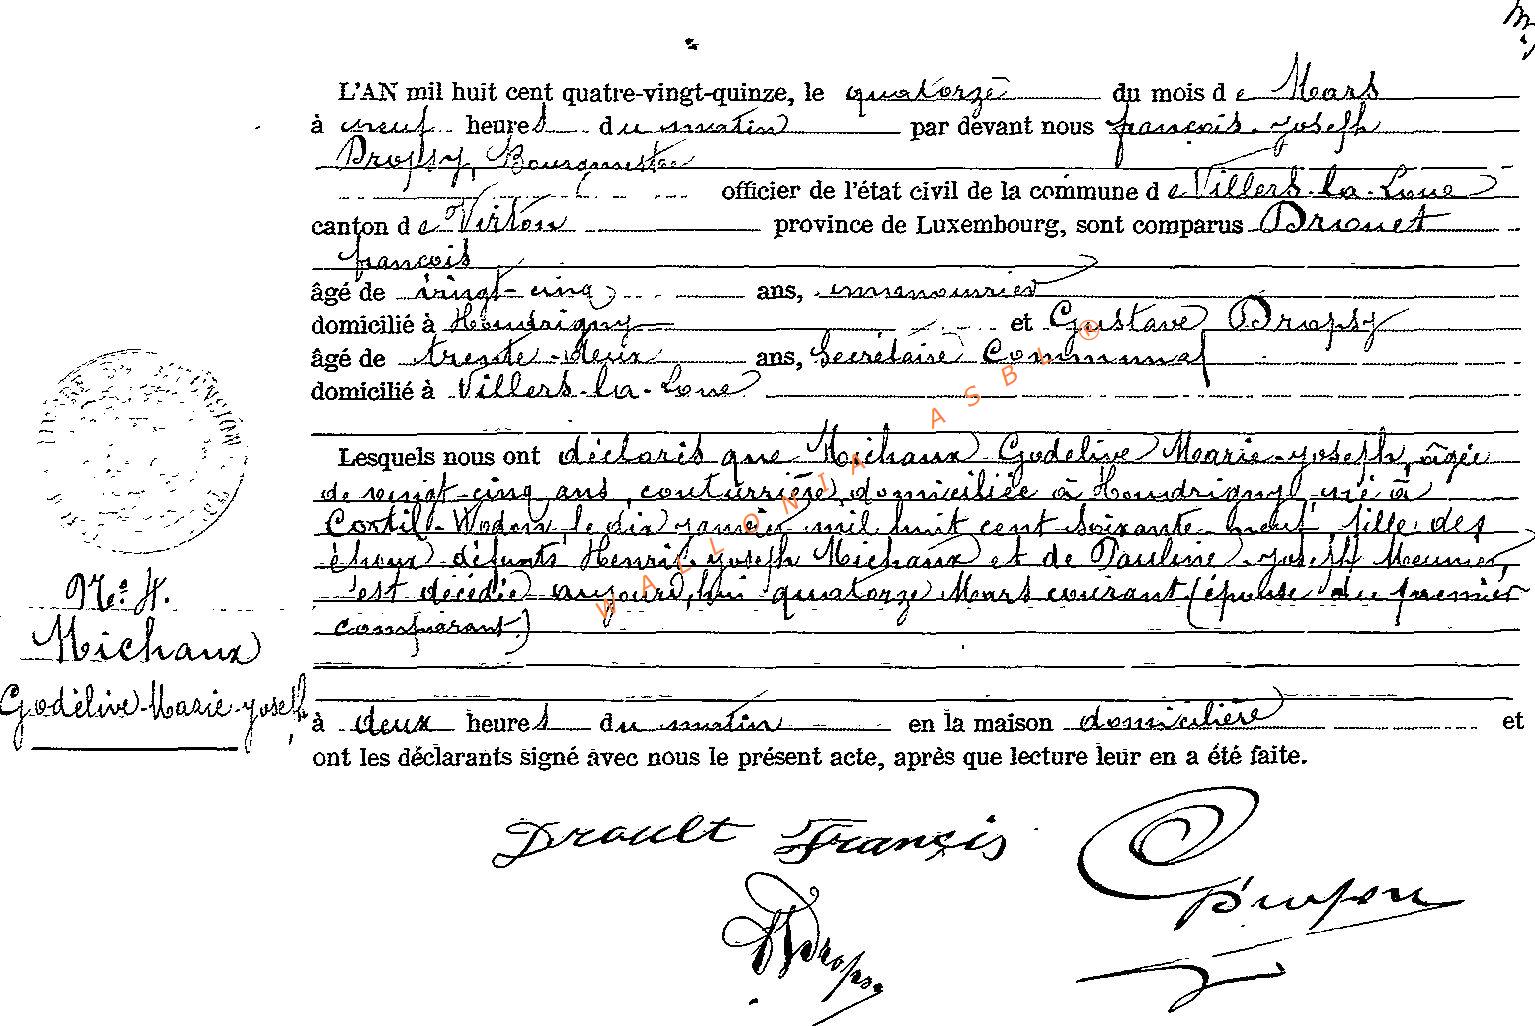 L'AN mil huit cent quatre-vingt-quinze, le quatorze du mois de Mars
à neuf heures du matin par devant nous françois-joseph
Dropsy, Bourgmestre
officier de l'état civil de la commune de Villers-la-Loue
canton de Virton province de Luxembourg, sont comparus Drouet
françois
âgé de vingt-cinq ans, manouvrier
domicilié à Houdrigny et Gustave Dropsy
âgé de trente-deux ans, Secrétaire Communal
domicilié à Villers-la-Loue
Lesquels nous ont déclarés que Michaux Godelive Marie-joseph, âgée
de vingt-cinq ans, couturrière, domiciliée à Houdrigny, né à
Cortil-Wodon, le dix janvier mil huit cent soixante-neuf, fille des
époux défunts Henri-joseph Michaux et de Pauline-joseph Meunier,
est décédée aujourd'hui quatorze Mars courant (épouse du premier
comparant)
N° 4.
Michaux
Godélive-Marie-joseph
à deux heures du matin en la maison domicilière et
ont les déclarants signé avec nous le présent acte, après que lecture leur en a été faite.
Drouet François
Dropsy
WALLONIA ASBL ®